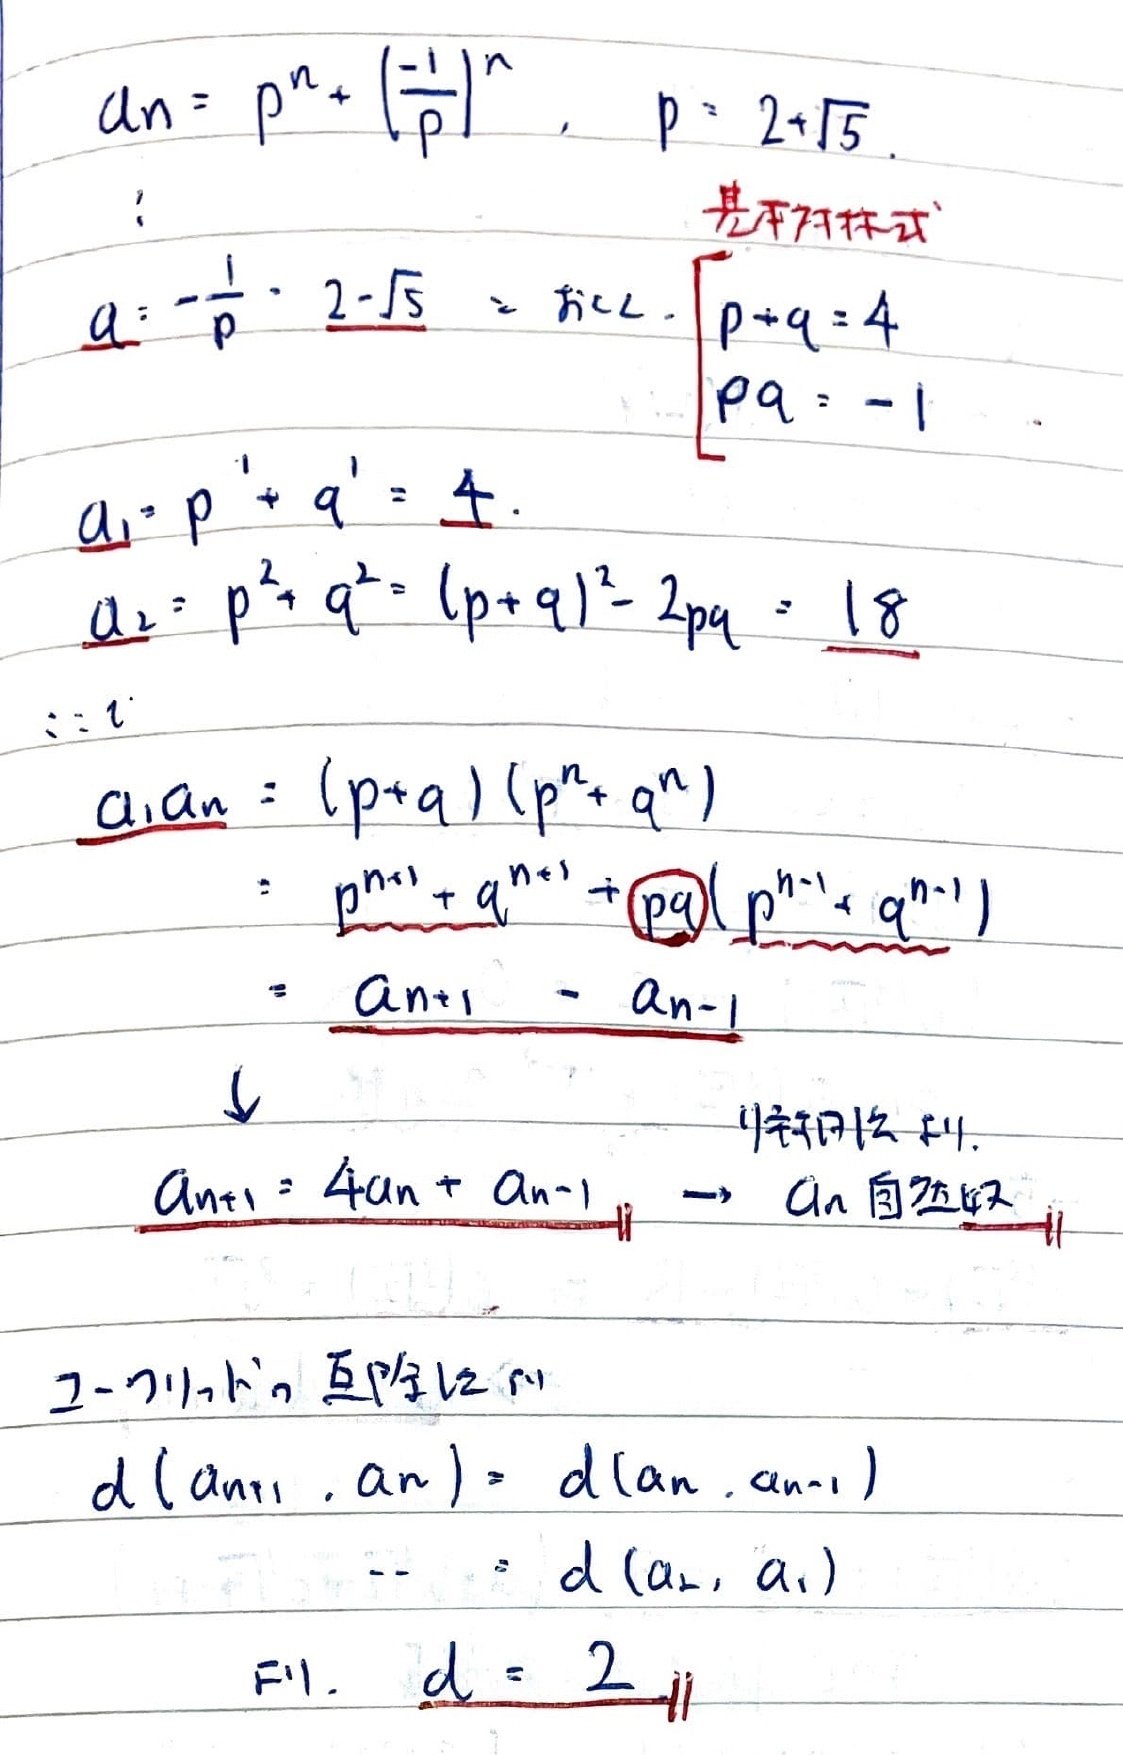 an = p^n + (-1/p)^n , p = 2+√5 .
⋮
基本対称式
q = -1/p = 2-√5 とおくと. [ p+q = 4
pq = -1
a₁ = p¹ + q¹ = 4 .
a₂ = p² + q² = (p+q)² - 2pq = 18
ここで
a₁an = (p+q)(p^n + q^n)
= p^{n+1} + q^{n+1} + pq(p^{n-1} + q^{n-1})
= an+1 - an-1
↓
リ帰納法より.
an+1 = 4an + an-1 → an 自然数
ユークリッドの互除法より
d(an+1 , an) = d(an , an-1)
-- = d(a₂, a₁)
より. d = 2